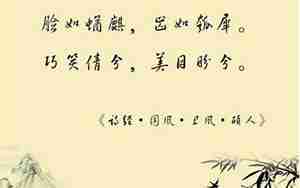 脸如蛹麒，齿如瓠犀。
巧笑倩兮，美目盼兮。
《诗经·国风·卫风·硕人》